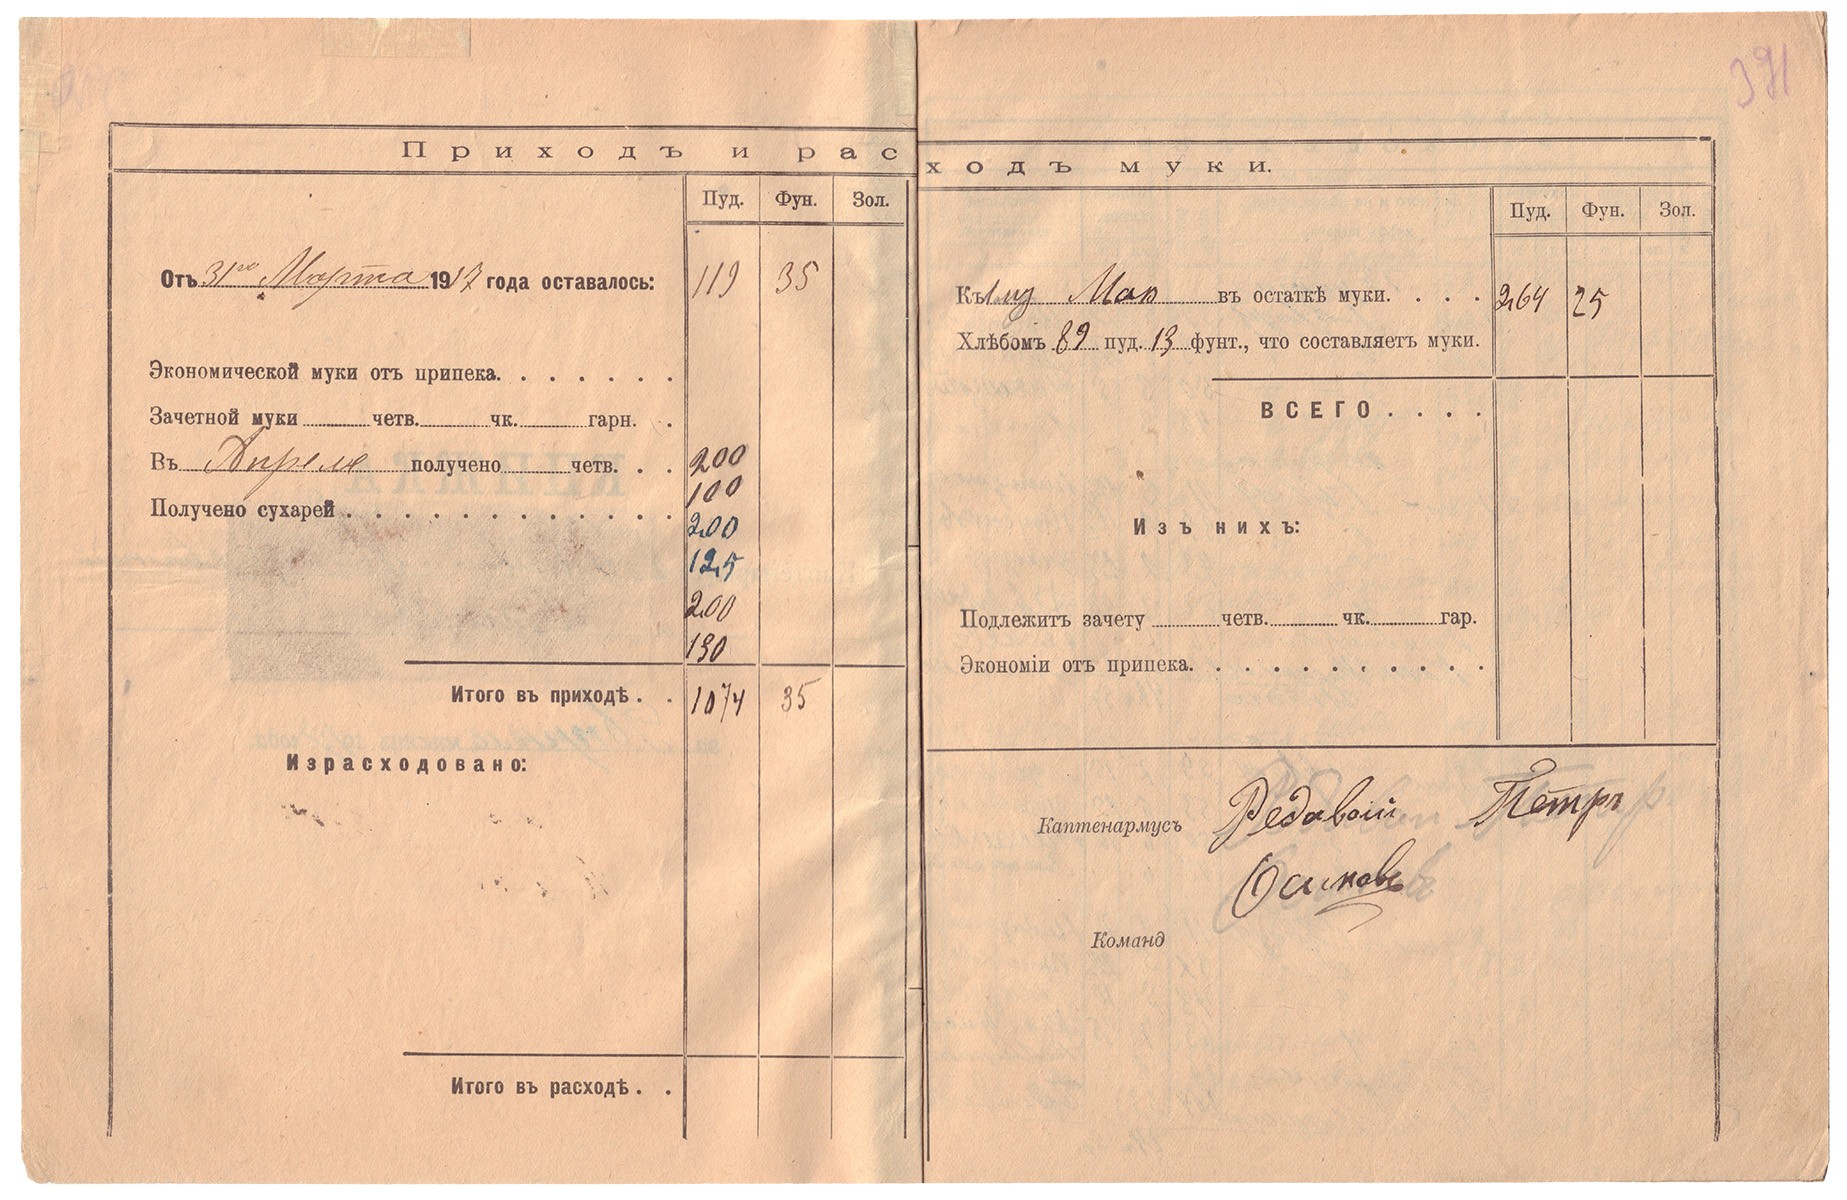 391
Приходъ и расходъ муки.
Пуд. Фун. Зол.
Отъ 31го Марта 1917 года оставалось: 119 35
Экономической муки отъ припека. . . . . . .
Зачетной муки ........ четв. ........ чк. ........ гарн. .
Въ Апреле получено ........ четв. . . 200
100
Получено сухарей . . . . . . . . . . . . 200
125
200
130
Итого въ приходѣ . . 1074 35
Израсходовано:
Итого въ расходѣ . .
Пуд. Фун. Зол.
Къ 1му Мая въ остаткѣ муки. . . . . 264 25
Хлѣбомъ 89 пуд. 13 фунт., что составляетъ муки.
ВСЕГО . . . .
Изъ нихъ:
Подлежитъ зачету ........ четв. ........ чк. ........ гар.
Экономіи отъ припека. . . . . . . . . . .
Каптенармусъ Рядавой Петръ
Осиповъ
Команд